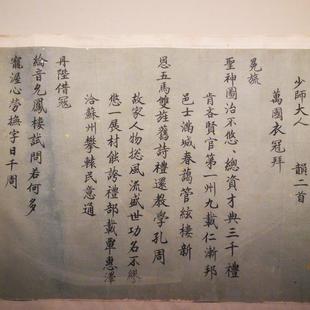 少師大人　韻二首
萬國衣冠拜
冕旒
聖神圖治不悠悠總資才典三千禮
肯吝賢官第一州九載仁漸邦
邑士滿城春藹管絃樓新
恩五馬雙旌舊詩禮還教學孔周
故家人物總風流盛世功名不繆
悠一展材能誇禮部載覃惠澤
洽蘇州攀轅民意通
丹陛借冠
綸音允鳳樓試問若何多
寵渥心勞撫字日千周